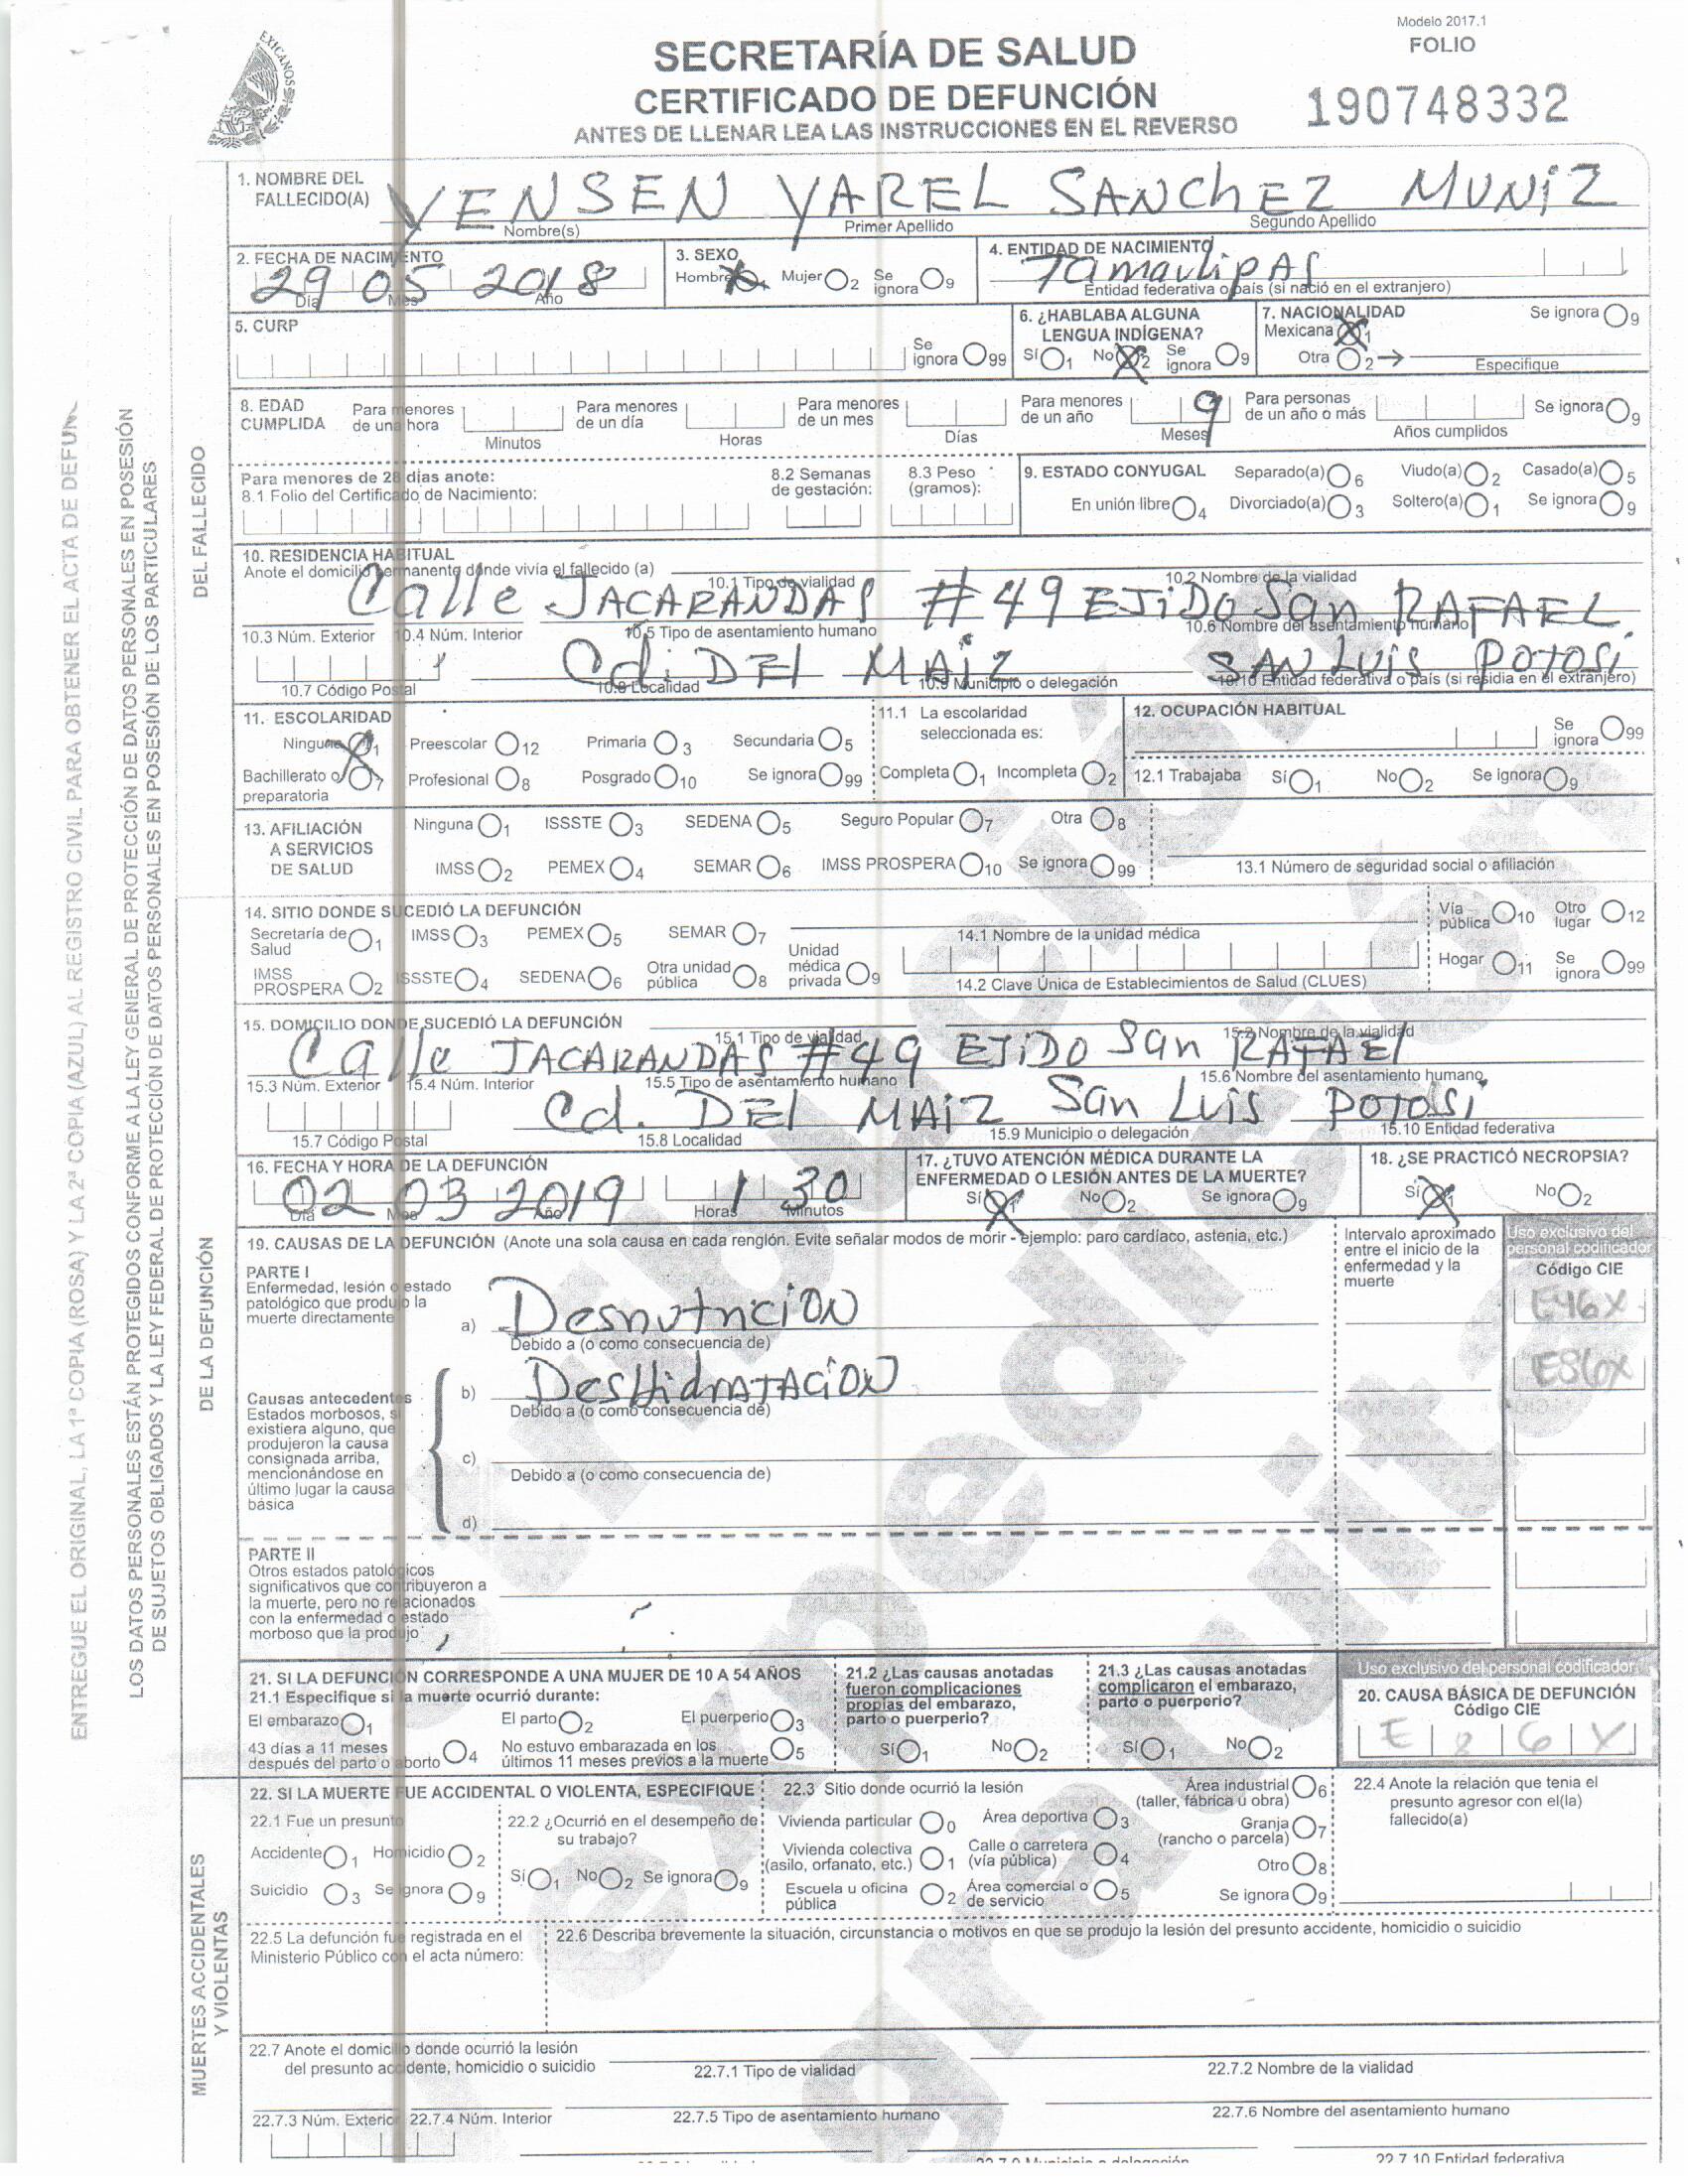 Modelo 2017.1
FOLIO
190748332
EXICANOS
SECRETARÍA DE SALUD
CERTIFICADO DE DEFUNCIÓN
ANTES DE LLENAR LEA LAS INSTRUCCIONES EN EL REVERSO
ENTREGUE EL ORIGINAL, LA 1ª COPIA (ROSA) Y LA 2ª COPIA (AZUL) AL REGISTRO CIVIL PARA OBTENER EL ACTA DE DEFUN
LOS DATOS PERSONALES ESTÁN PROTEGIDOS CONFORME A LA LEY GENERAL DE PROTECCIÓN DE DATOS PERSONALES EN POSESIÓN
DE SUJETOS OBLIGADOS Y LA LEY FEDERAL DE PROTECCIÓN DE DATOS PERSONALES EN POSESIÓN DE LOS PARTICULARES
DEL FALLECIDO
1. NOMBRE DEL FALLECIDO(A) YENSEN YAREL SANCHEZ MUNIZ
Nombre(s) Primer Apellido Segundo Apellido
2. FECHA DE NACIMIENTO 29 05 2018
Día Mes Año
3. SEXO
Hombre Mujer 2 Se ignora 9
4. ENTIDAD DE NACIMIENTO
TAmaulipAS
Entidad federativa o país (si nació en el extranjero)
5. CURP
Se ignora 99
6. ¿HABLABA ALGUNA LENGUA INDÍGENA?
Sí 1 No 2 Se ignora 9
7. NACIONALIDAD Se ignora 9
Mexicana 1
Otra 2 → Especifique
8. EDAD CUMPLIDA
Para menores de una hora Minutos
Para menores de un día Horas
Para menores de un mes Días
Para menores de un año 9 Meses
Para personas de un año o más Años cumplidos
Se ignora 9
Para menores de 28 días anote:
8.1 Folio del Certificado de Nacimiento:
8.2 Semanas de gestación:
8.3 Peso (gramos):
9. ESTADO CONYUGAL Separado(a) 6 Viudo(a) 2 Casado(a) 5
En unión libre 4 Divorciado(a) 3 Soltero(a) 1 Se ignora 9
10. RESIDENCIA HABITUAL
Anote el domicilio permanente dónde vivía el fallecido (a)
10.1 Tipo de vialidad 10.2 Nombre de la vialidad
Calle JACARANDAS #49 EJiDO San RAFAEL
10.3 Núm. Exterior 10.4 Núm. Interior 10.5 Tipo de asentamiento humano 10.6 Nombre del asentamiento humano
Cd. DEl MAiZ SAN LUiS POTOSi
10.7 Código Postal 10.8 Localidad 10.9 Municipio o delegación 10.10 Entidad federativa o país (si residía en el extranjero)
11. ESCOLARIDAD
Ninguna 1 Preescolar 12 Primaria 3 Secundaria 5
Bachillerato o preparatoria 7 Profesional 8 Posgrado 10 Se ignora 99
11.1 La escolaridad seleccionada es:
Completa 1 Incompleta 2
12. OCUPACIÓN HABITUAL
Se ignora 99
12.1 Trabajaba Sí 1 No 2 Se ignora 9
13. AFILIACIÓN A SERVICIOS DE SALUD
Ninguna 1 ISSSTE 3 SEDENA 5 Seguro Popular 7 Otra 8
IMSS 2 PEMEX 4 SEMAR 6 IMSS PROSPERA 10 Se ignora 99
13.1 Número de seguridad social o afiliación
DE LA DEFUNCIÓN
14. SITIO DONDE SUCEDIÓ LA DEFUNCIÓN
Secretaría de Salud 1 IMSS 3 PEMEX 5 SEMAR 7
14.1 Nombre de la unidad médica
Vía pública 10 Otro lugar 12
IMSS PROSPERA 2 ISSSTE 4 SEDENA 6 Otra unidad pública 8 Unidad médica privada 9
14.2 Clave Única de Establecimientos de Salud (CLUES)
Hogar 11 Se ignora 99
15. DOMICILIO DONDE SUCEDIÓ LA DEFUNCIÓN
15.1 Tipo de vialidad 15.2 Nombre de la vialidad
Calle JACARANDAS #49 EJiDO San RAFAEl
15.3 Núm. Exterior 15.4 Núm. Interior 15.5 Tipo de asentamiento humano 15.6 Nombre del asentamiento humano
Cd. DEl MAiZ San Luis POTOSi
15.7 Código Postal 15.8 Localidad 15.9 Municipio o delegación 15.10 Entidad federativa
16. FECHA Y HORA DE LA DEFUNCIÓN
02 03 2019 1 30
Día Mes Año Horas Minutos
17. ¿TUVO ATENCIÓN MÉDICA DURANTE LA ENFERMEDAD O LESIÓN ANTES DE LA MUERTE?
Sí 1 No 2 Se ignora 9
18. ¿SE PRACTICÓ NECROPSIA?
Sí 1 No 2
19. CAUSAS DE LA DEFUNCIÓN (Anote una sola causa en cada renglón. Evite señalar modos de morir - ejemplo: paro cardíaco, astenia, etc.)
Intervalo aproximado entre el inicio de la enfermedad y la muerte
Uso exclusivo del personal codificador
Código CIE
PARTE I
Enfermedad, lesión o estado patológico que produjo la muerte directamente
a) Desnutricion E46X
Debido a (o como consecuencia de)
b) DesHidrATACiON E86X
Debido a (o como consecuencia de)
Causas antecedentes
Estados morbosos, si existiera alguno, que produjeron la causa consignada arriba, mencionándose en último lugar la causa básica
c)
Debido a (o como consecuencia de)
d)
PARTE II
Otros estados patológicos significativos que contribuyeron a la muerte, pero no relacionados con la enfermedad o estado morboso que la produjo
21. SI LA DEFUNCIÓN CORRESPONDE A UNA MUJER DE 10 A 54 AÑOS
21.1 Especifique si la muerte ocurrió durante:
El embarazo 1 El parto 2 El puerperio 3
43 días a 11 meses después del parto o aborto 4 No estuvo embarazada en los últimos 11 meses previos a la muerte 5
21.2 ¿Las causas anotadas fueron complicaciones propias del embarazo, parto o puerperio?
Sí 1 No 2
21.3 ¿Las causas anotadas complicaron el embarazo, parto o puerperio?
Sí 1 No 2
Uso exclusivo del personal codificador
20. CAUSA BÁSICA DE DEFUNCIÓN
Código CIE
E 8 6 X
MUERTES ACCIDENTALES Y VIOLENTAS
22. SI LA MUERTE FUE ACCIDENTAL O VIOLENTA, ESPECIFIQUE
22.1 Fue un presunto
Accidente 1 Homicidio 2
Suicidio 3 Se ignora 9
22.2 ¿Ocurrió en el desempeño de su trabajo?
Sí 1 No 2 Se ignora 9
22.3 Sitio donde ocurrió la lesión
Vivienda particular 0 Área deportiva 3 Área industrial (taller, fábrica u obra) 6
Vivienda colectiva (asilo, orfanato, etc.) 1 Calle o carretera (vía pública) 4 Granja (rancho o parcela) 7
Otro 8
Escuela u oficina pública 2 Área comercial o de servicio 5 Se ignora 9
22.4 Anote la relación que tenia el presunto agresor con el(la) fallecido(a)
22.5 La defunción fue registrada en el Ministerio Público con el acta número:
22.6 Describa brevemente la situación, circunstancia o motivos en que se produjo la lesión del presunto accidente, homicidio o suicidio
22.7 Anote el domicilio donde ocurrió la lesión del presunto accidente, homicidio o suicidio
22.7.1 Tipo de vialidad 22.7.2 Nombre de la vialidad
22.7.3 Núm. Exterior 22.7.4 Núm. Interior 22.7.5 Tipo de asentamiento humano 22.7.6 Nombre del asentamiento humano
22.7.9 Municipio o delegación 22.7.10 Entidad federativa